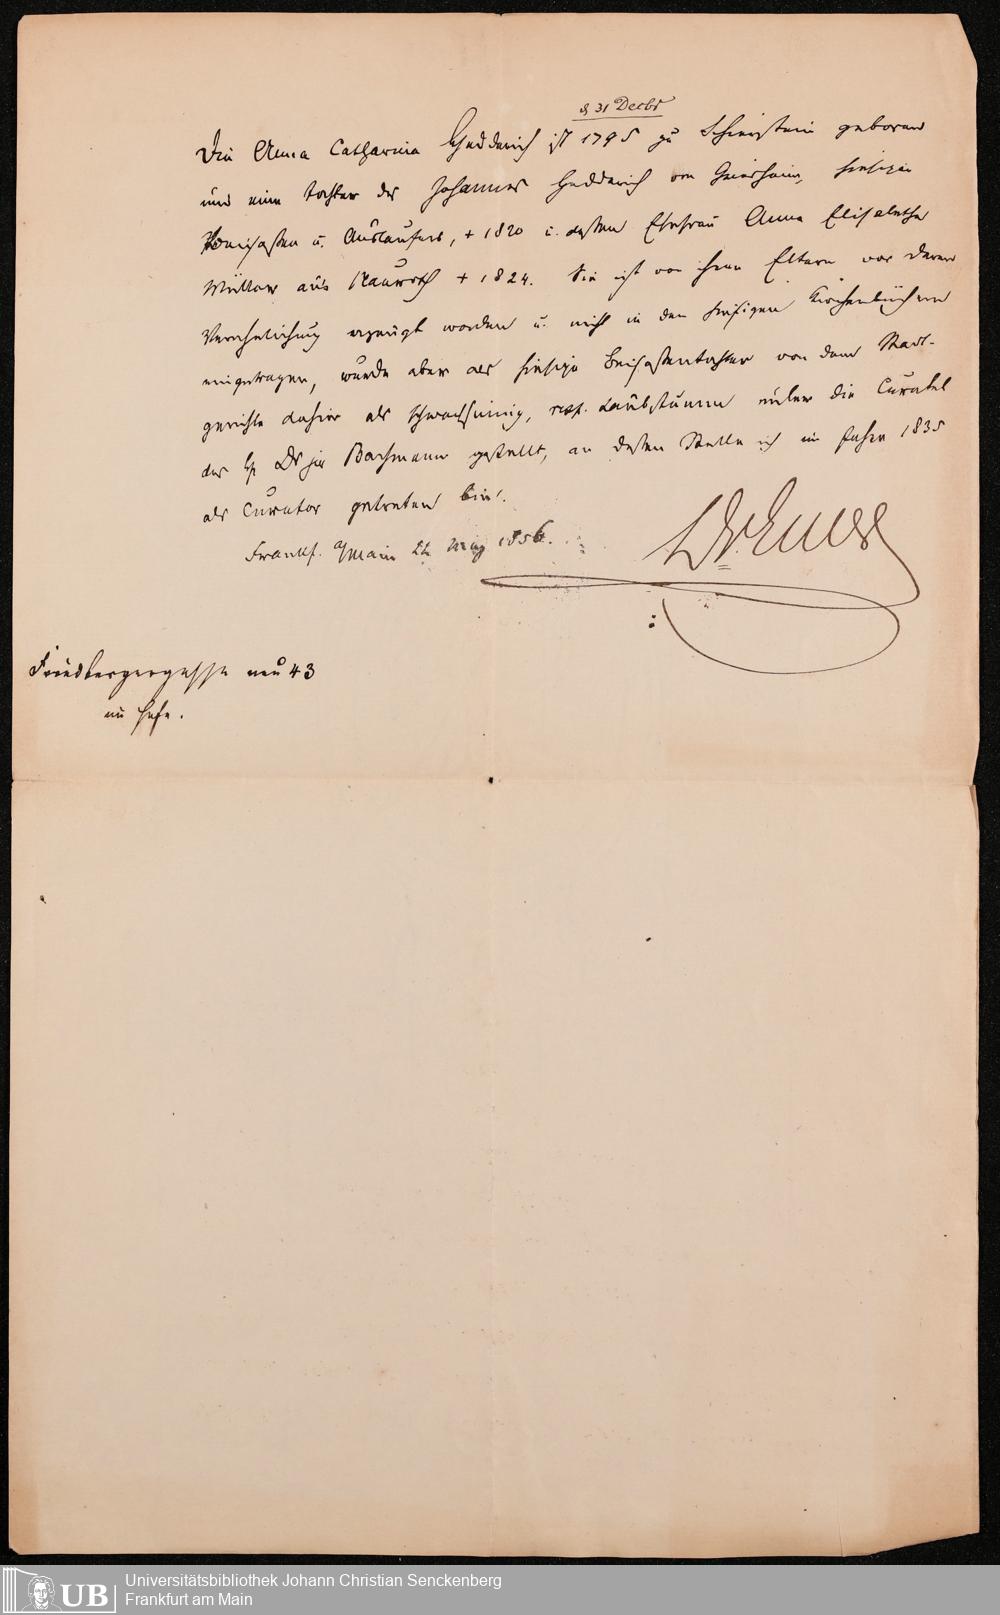 d 31 Decbr
Die Anna Catharina Hedderich ist 1795 zu Schierstein geboren
und eine Tochter des Johannes Hedderich von Griesheim, hiesigen
Beisassen u. Ausläufers, + 1820 u. dessen Ehefrau Anna Elisabetha
Müller aus Nauroth + 1824. Sie ist von ihren Eltern vor deren
Verehelichung erzeugt worden u. nicht in den hiesigen Kirchenbüchern
eingetragen, wurde aber als hiesige Beisassentochter von dem Stadt-
gerichte dahier als schwachsinnig, resp. taubstumm unter die Curatel
des H. Dr jur Bachmann gestellt, an dessen Stelle ich im Jahre 1835
als Curator getreten bin.
Frankf. a/Main 22 May 1856.
Dr.
Friedbergergasse neu 43
im Hofe.
UB
Universitätsbibliothek Johann Christian Senckenberg
Frankfurt am Main